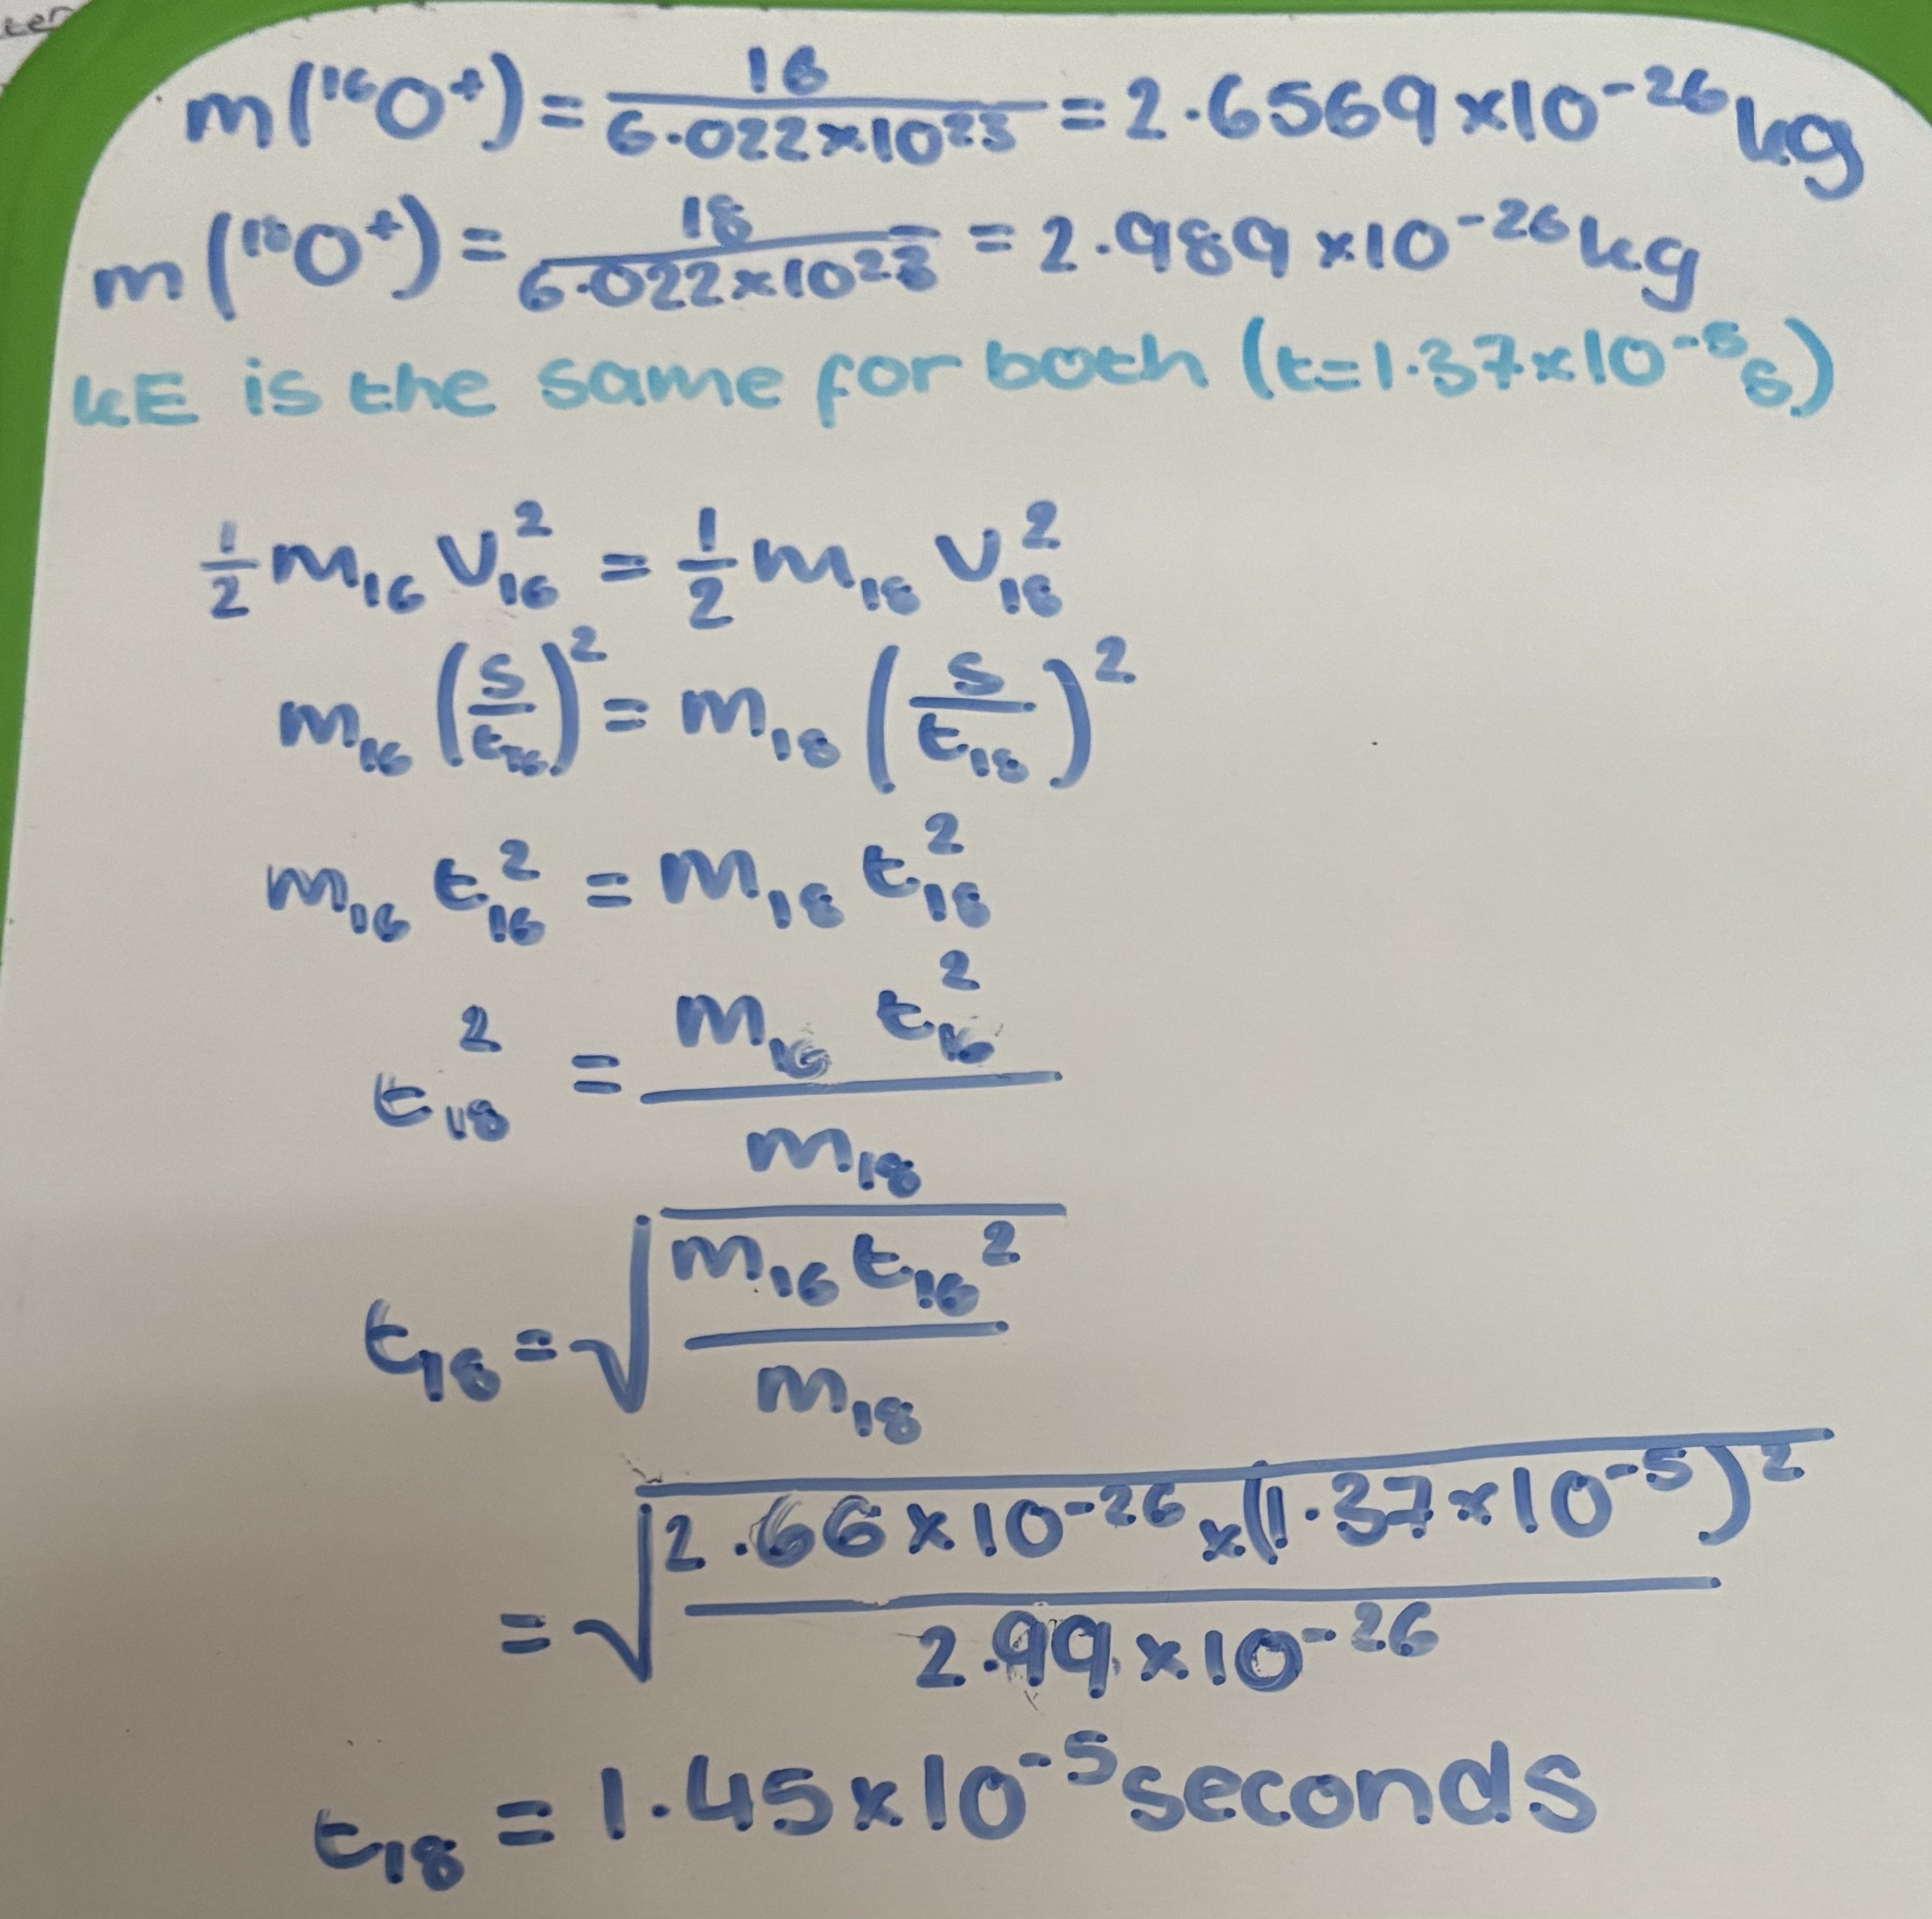 m(¹⁶O⁺) = 16 / 6.022×10²³ = 2.6569 ×10⁻²⁶ kg
m(¹⁸O⁺) = 18 / 6.022×10²³ = 2.989 ×10⁻²⁶ kg
KE is the same for both (t=1.37×10⁻⁵ s)
½ m₁₆ v₁₆² = ½ m₁₈ v₁₈²
m₁₆ (s/t₁₆)² = m₁₈ (s/t₁₈)²
m₁₆ t₁₆² = m₁₈ t₁₈²
t₁₈² = m₁₆ t₁₆² / m₁₈
t₁₈ = √(m₁₆ t₁₆² / m₁₈)
= √(2.66×10⁻²⁶ ×(1.37×10⁻⁵)² / 2.99×10⁻²⁶)
t₁₈ = 1.45×10⁻⁵ seconds